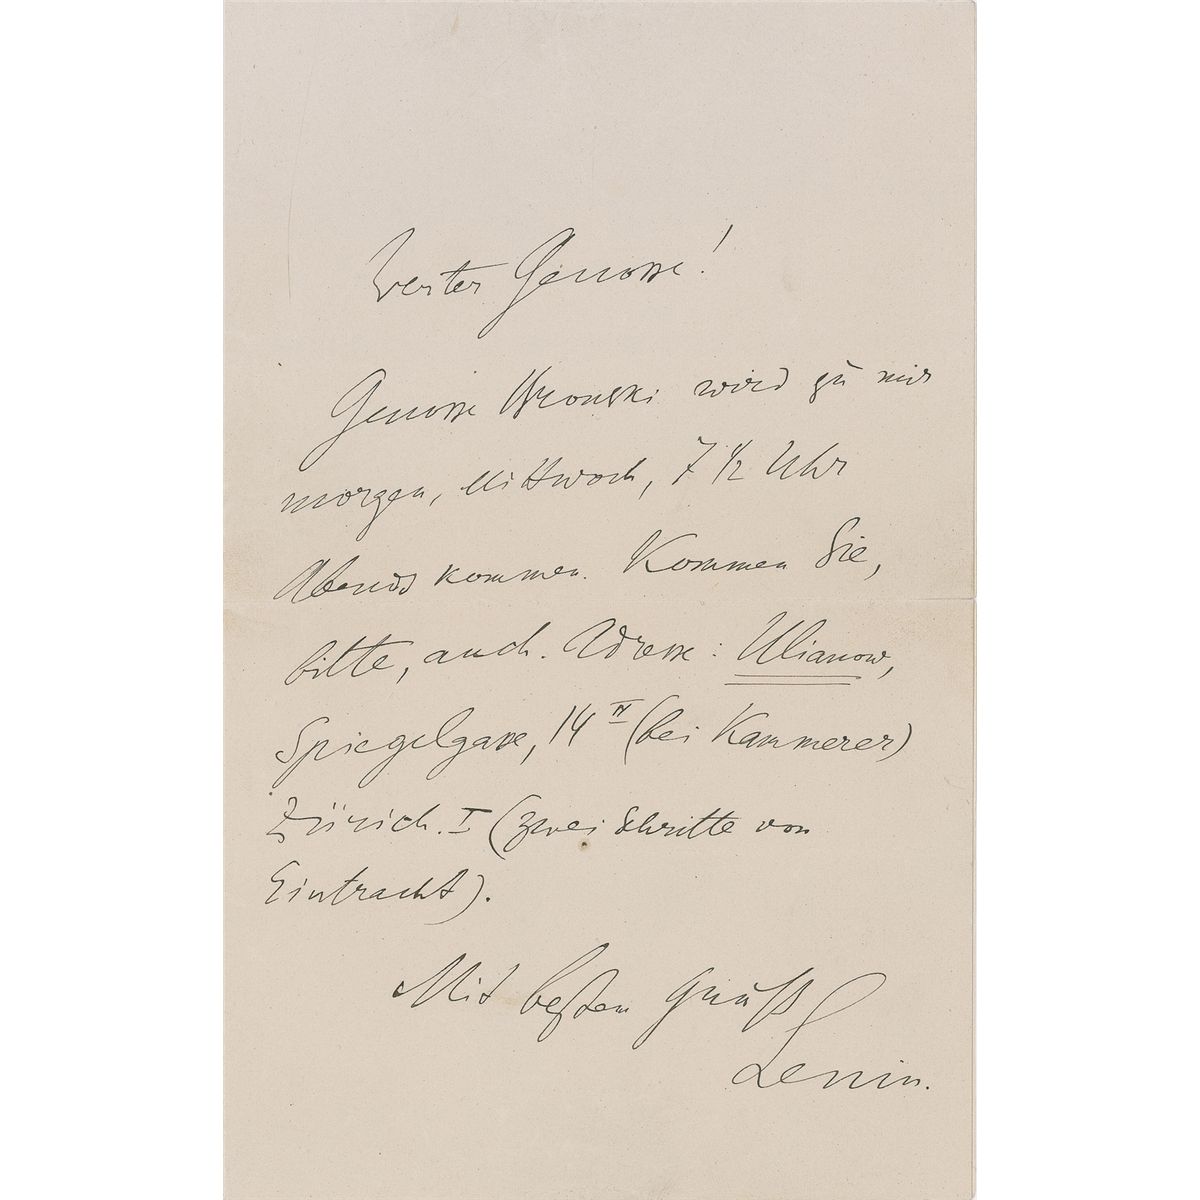 Werter Genosse!
Genosse Wronski wird zu mir
morgen, Mittwoch, 7 1/2 Uhr
Abends kommen. Kommen Sie,
bitte, auch. Adresse: Ulianow,
Spiegelgasse, 14 II (bei Kammerer)
Zürich. I (zwei Schritte von
Eintracht).
Mit besten Gruß
Lenin.